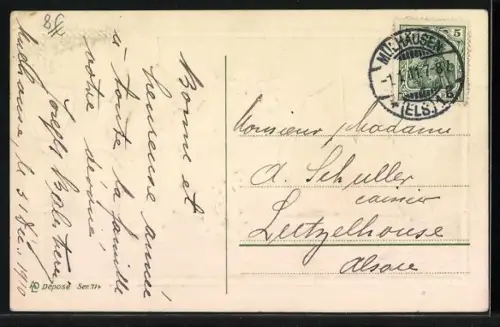 98
Bonne et
heureuse année
a toute la famille
votre dévoué
Joseph
Mulhouse, le 31 Déc. 1910
MÜLHAUSEN
(ELS.)
5
Monsieur, Madame
A. Schuller
Lutzelhouse
Alsace
Déposé Ser.